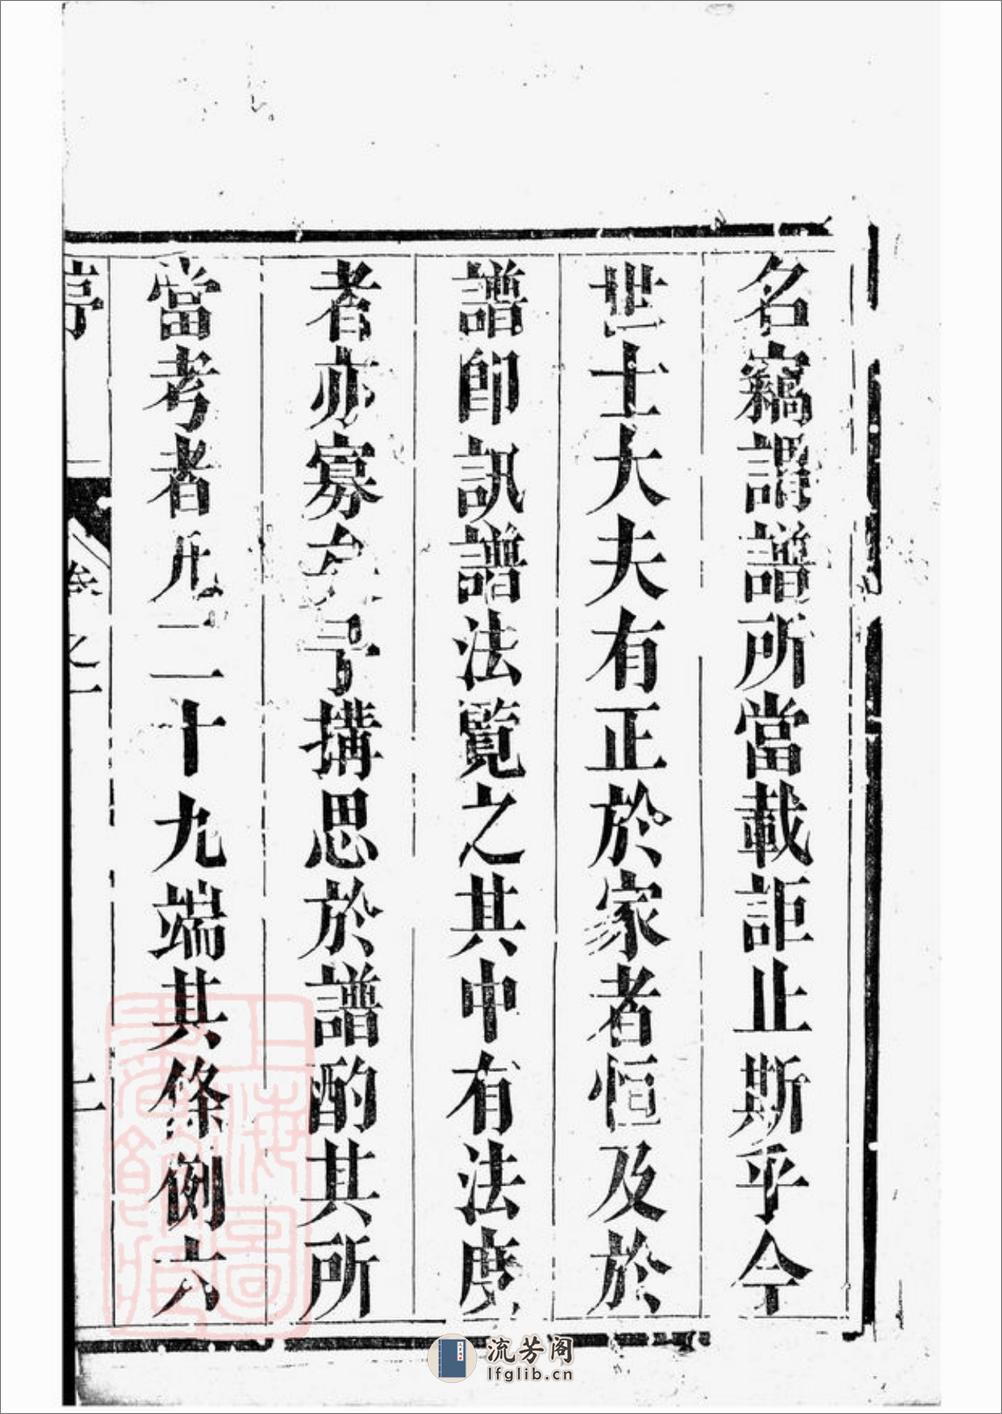 名竊謂譜所當載詎止斯乎今
世士大夫有正於家者恒及於
譜即訊譜法覽之其中有法度
者亦寡矣予搆思於譜酌其所
當考者凡二十九端其條例六
序
卷之一
二
上海圖
書館藏
流芳阁
lfglib.cn